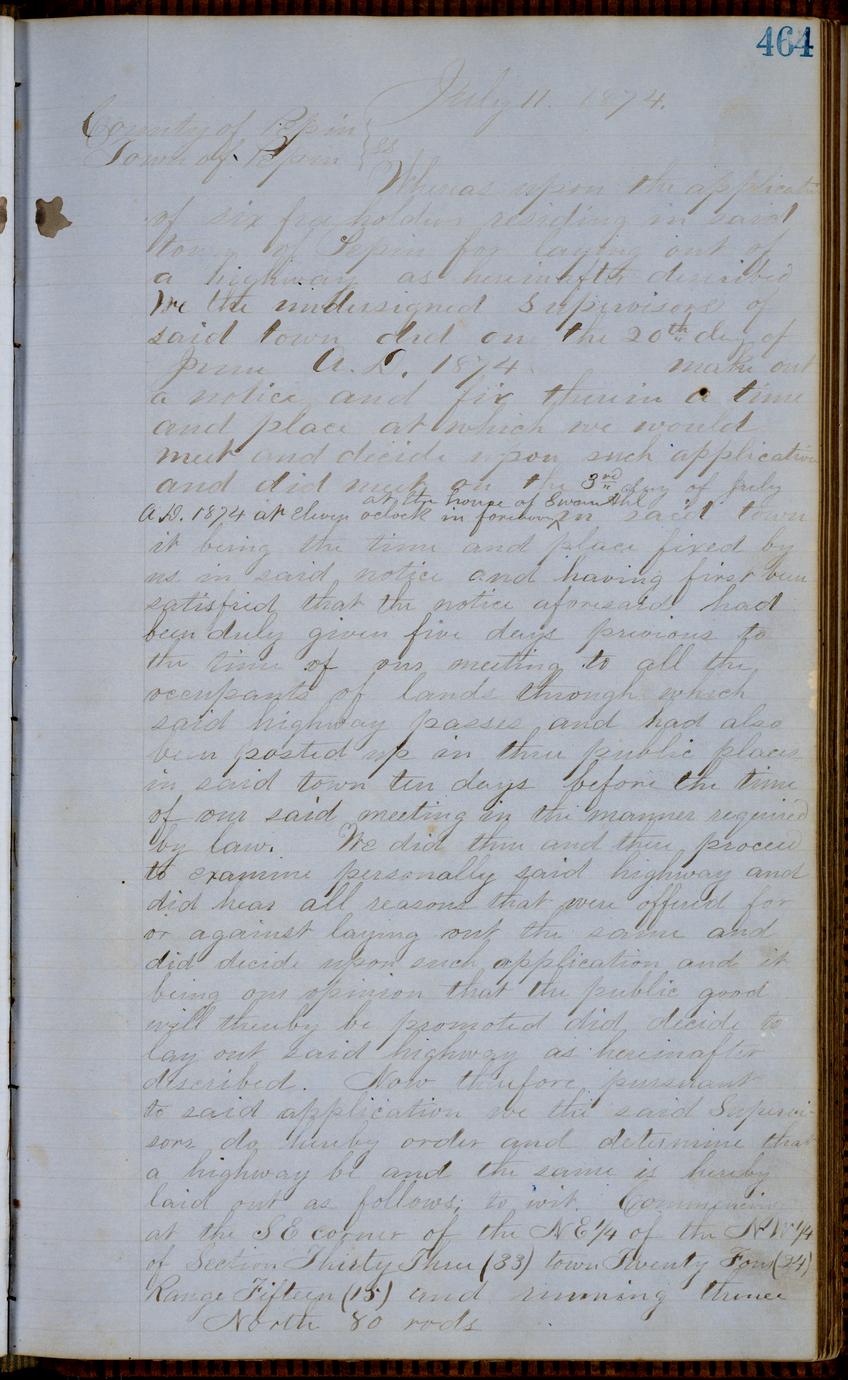 464
July 11. 1874.
County of Pepin
Town of Pepin } ss
Whereas upon the applicati
of six freeholders residing in said
town of Pepin for laying out of
a highway as hereinafter described
We the undersigned Supervisors of
said town did on the 20th day of
June A.D. 1874 make out
a notice and fix therein a time
and place at which we would
meet and decide upon such application
and did meet on the 3rd day of July
at the house of Swan
A.D. 1874 at eleven oclock in forenoon in said town
it being the time and place fixed by
us in said notice and having first been
satisfied that the notice aforesaid had
been duly given five days previous to
the time of our meeting to all the
occupants of lands through which
said highway passes and had also
been posted up in three public places
in said town ten days before the time
of our said meeting in the manner required
by law. We did then and there proceed
to examine personally said highway and
did hear all reasons that were offered for
or against laying out the same and
did decide upon such application and it
being our opinion that the public good
will thereby be promoted did decide to
lay out said highway as hereinafter
described. Now therefore pursuant
to said application we the said Supervi-
sors do hereby order and determine that
a highway be and the same is hereby
laid out as follows; to wit. Commencing
at the SE corner of the NE 1/4 of the NW 1/4
of Section Thirty Three (33) town Twenty Four (24)
Range Fifteen (15) and running thence
North 80 rods